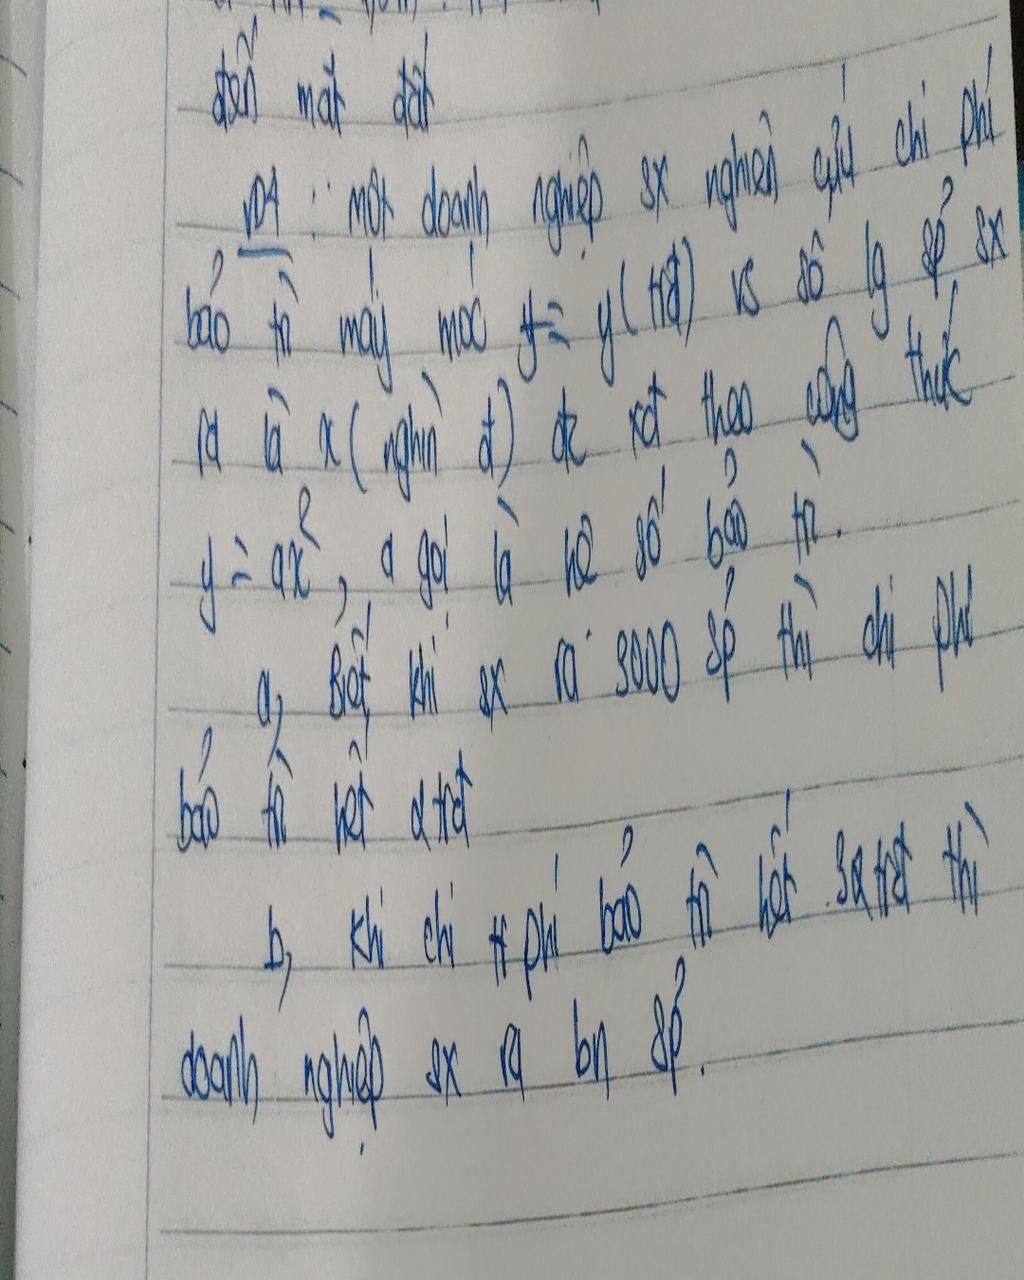 đến mặt đất
VD4: Một doanh nghiệp sx nghiên cứu chi phí
bảo trì máy móc y = y (trđ) vs số lg sp sx
ra là x (nghìn đ) đc xđ theo công thức
y = ax², a gọi là hệ số bảo trì.
a, Biết khi sx ra 3000 sp thì chi phí
bảo trì hết 2 trđ
b, Khi chi phí bảo trì hết trđ thì
doanh nghiệp sx ra bn sp.